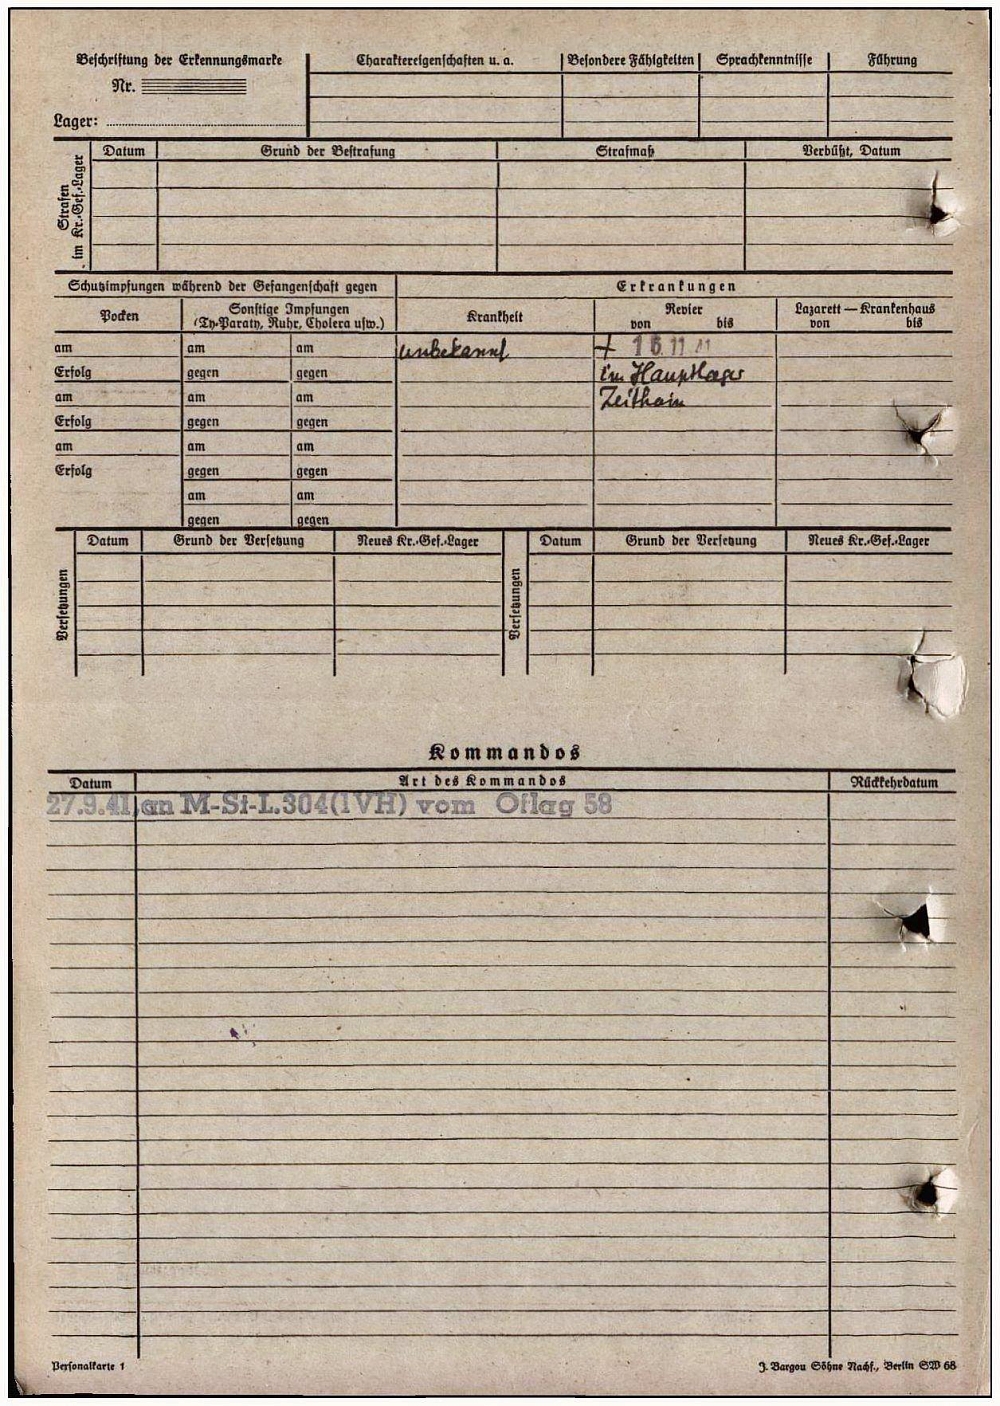 Beschriftung der Erkennungsmarke
Nr.
Lager:
Charaktereigenschaften u. a.
Besondere Fähigkeiten
Sprachkenntnisse
Führung
Strafen im Kr.-Gef.-Lager
Datum
Grund der Bestrafung
Strafmaß
Verbüßt, Datum
Schutzimpfungen während der Gefangenschaft gegen
Erkrankungen
Pocken
Sonstige Impfungen
(Ty-Paraty, Ruhr, Cholera usw.)
Krankheit
Revier
von bis
Lazarett — Krankenhaus
von bis
am am am unbekannt + 16.11.41
Erfolg gegen gegen im Hauptlager
am am am Zeithain
Erfolg gegen gegen
am am am
Erfolg gegen gegen
am am
gegen gegen
Versetzungen
Datum Grund der Versetzung Neues Kr.-Gef.-Lager
Versetzungen
Datum Grund der Versetzung Neues Kr.-Gef.-Lager
Kommandos
Datum Art des Kommandos Rückkehrdatum
27.9.41 an M-St-L.304(IVH) vom Oflag 58
Personalkarte 1
J. Bargou Söhne Nachf., Berlin SW 68